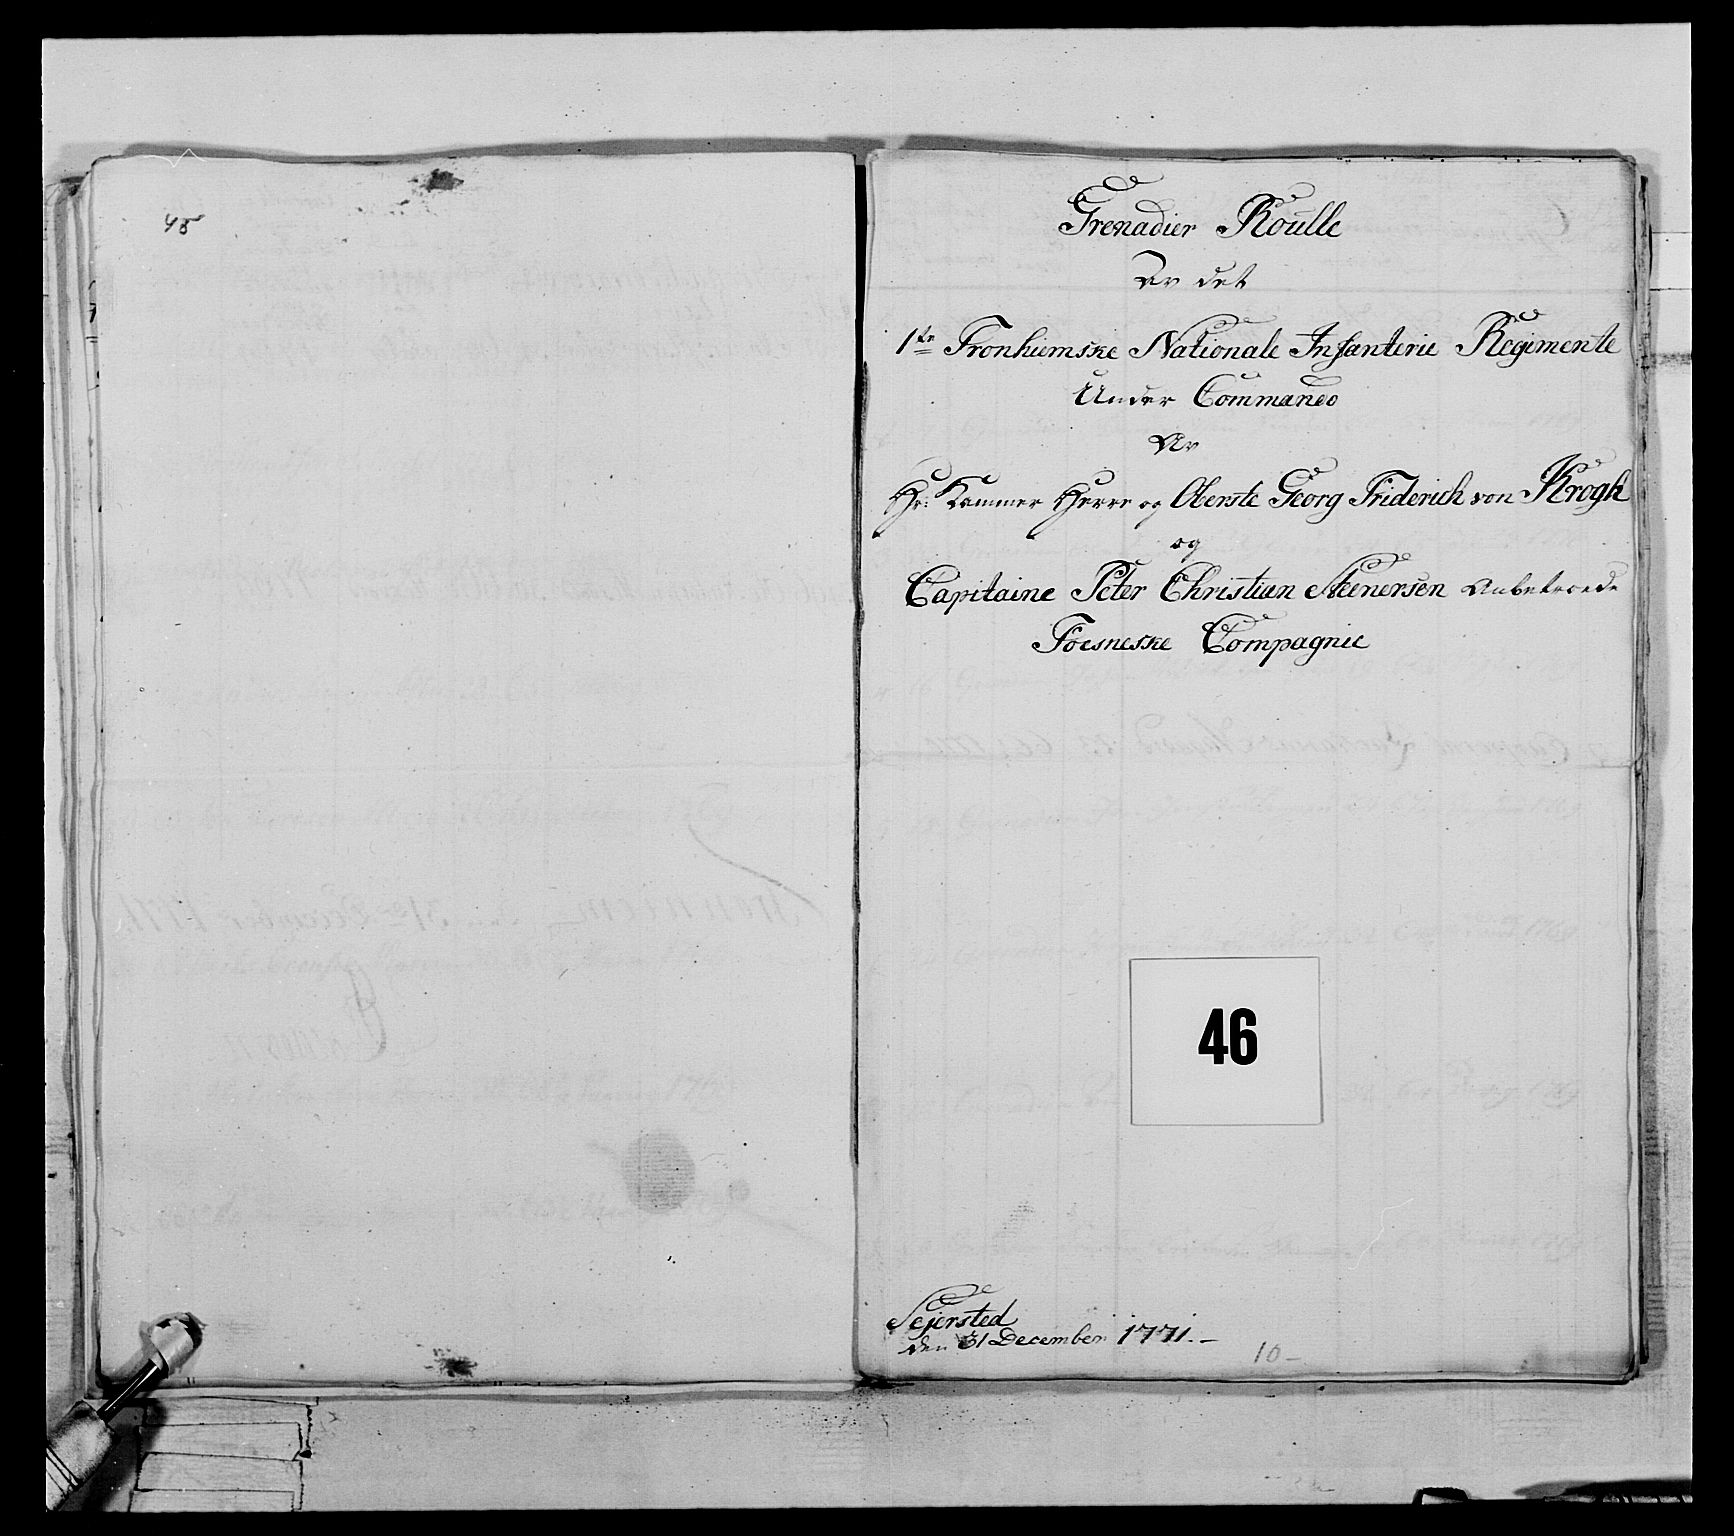 45
Grenadier Roulle
Av det
1te Tronhiemske Nationale Infanterie Regimente
Under Commando
Av
Hr: Kammer Herre og Oberste Georg Friderich von Krogh
og
Capitaine Peter Christian Steenersen Anbetroede
Foesneske Compagnie
46
Sejersted
den 31 December 1771.-
10-